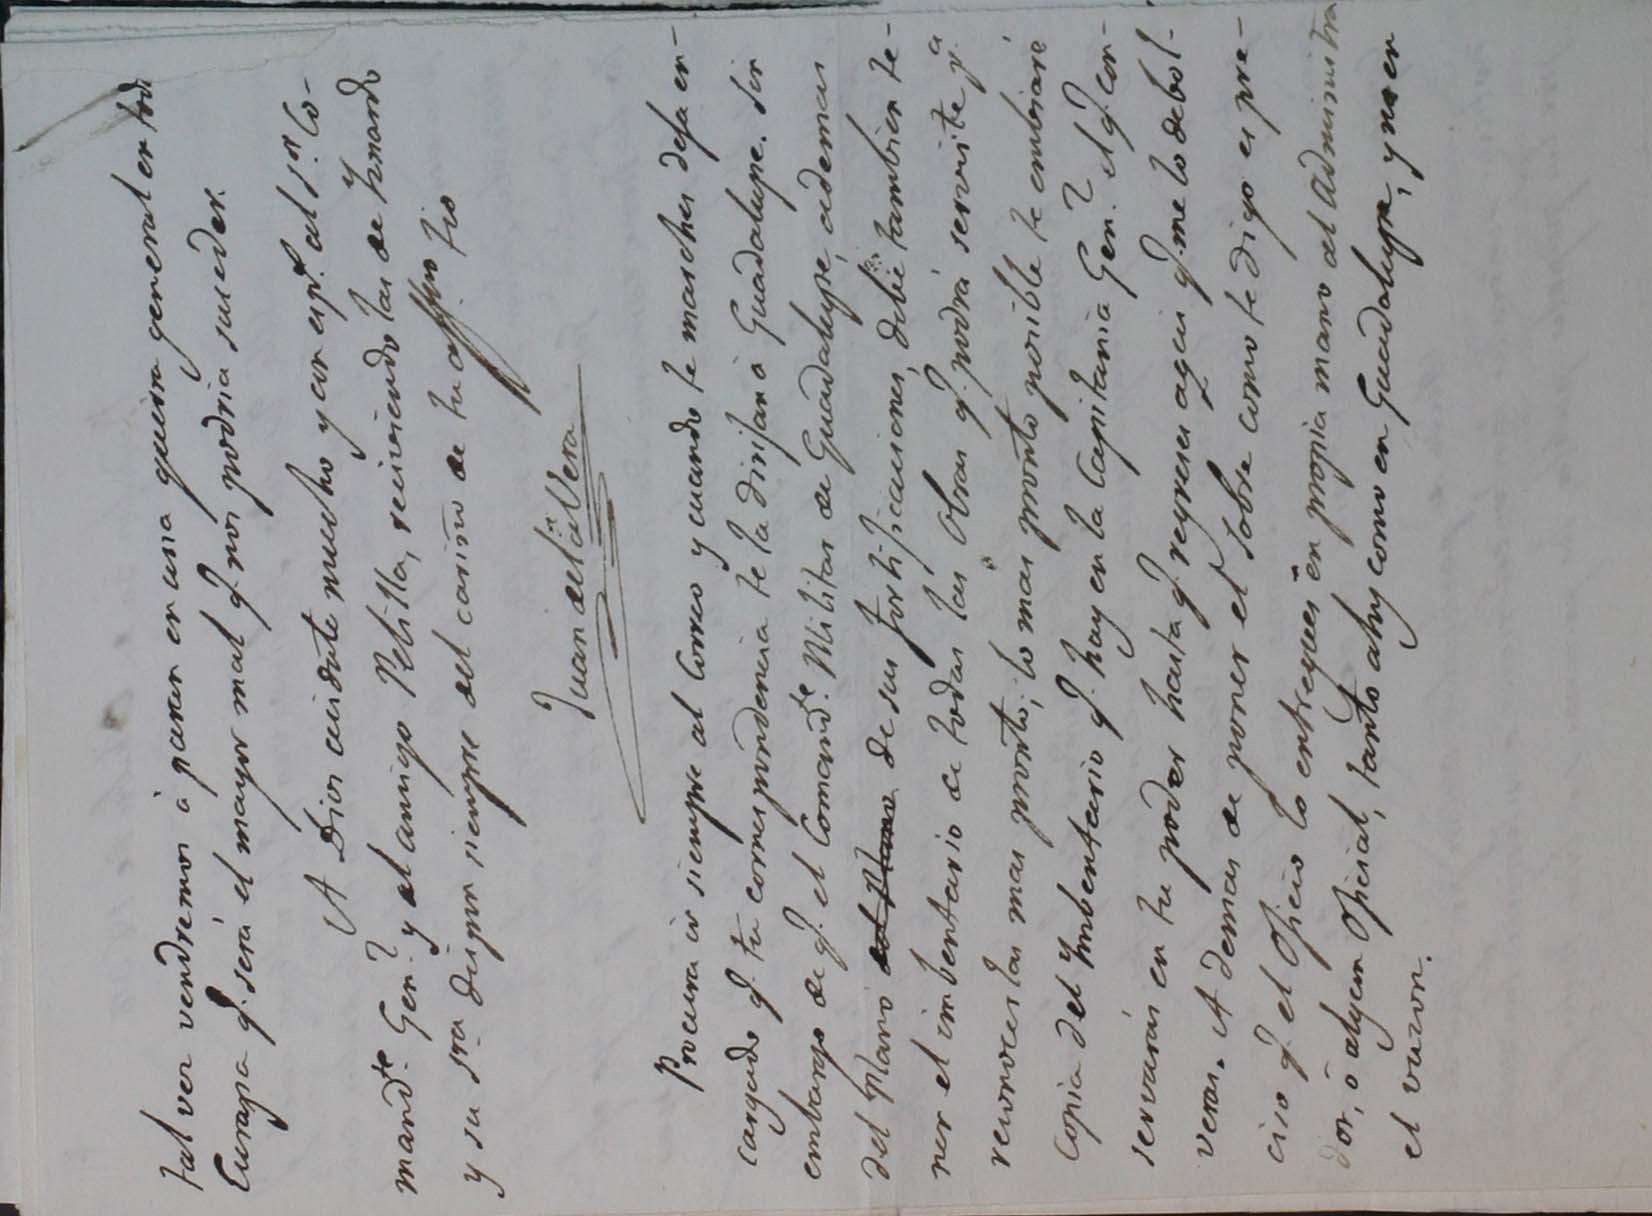 tal vez vendremos á parar en una guerra general en toda
Europa q.e será el mayor mal q. nos podria suceder.
A Dios cuidate mucho y con esp.l al S.or Co-
mand.te Gen.l y al amigo Pelilla, reciviendo las de Ynardo
y su S.ra dispon siempre del cariño de tu affmo tio
Juan de la Vera
Procura ir siempre al Correo y cuando te marches deja en-
cargado q. tu correspondencia te la dirijan á Guadalupe. Sin
embargo de q. el Comand.te Militar de Guadalupe, ademas
del plano del plano de sus fortificaciones, debe tambien te-
ner el imbentario de todas las obras q. podrá servirte p.a
reconocerlas mas pronto, lo mas pronto posible te embiaré
copia del Ymbentario q. hay en la Capitania Gen.l el q. con-
servarás en tu poder hasta q. regreses aqui q. me lo debol-
veras. A demas de poner el sobre como te digo es pre-
ciso q. el oficio lo entregues en propia mano al Administra
dor, ó algun Oficial, tanto ahy como en Guadalupe, y no en
el buzon.